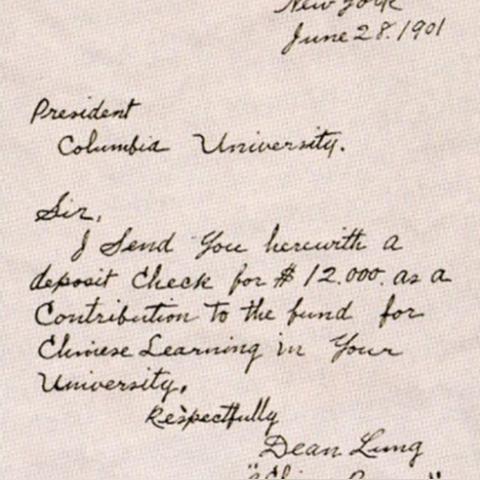 New York
June 28. 1901
President
Columbia University.
Sir,
I Send You herewith a
deposit Check for $12.000. as a
Contribution to the fund for
Chinese Learning in Your
University.
Respectfully
Dean Lung